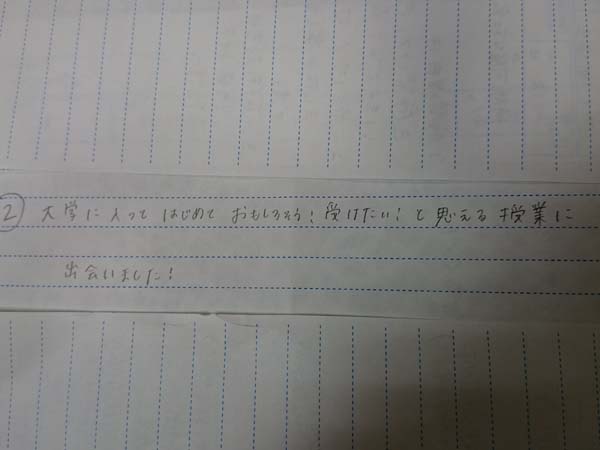 ② 大学に入って はじめて おもしろそう!受けたい!と思える授業に
出会いました!